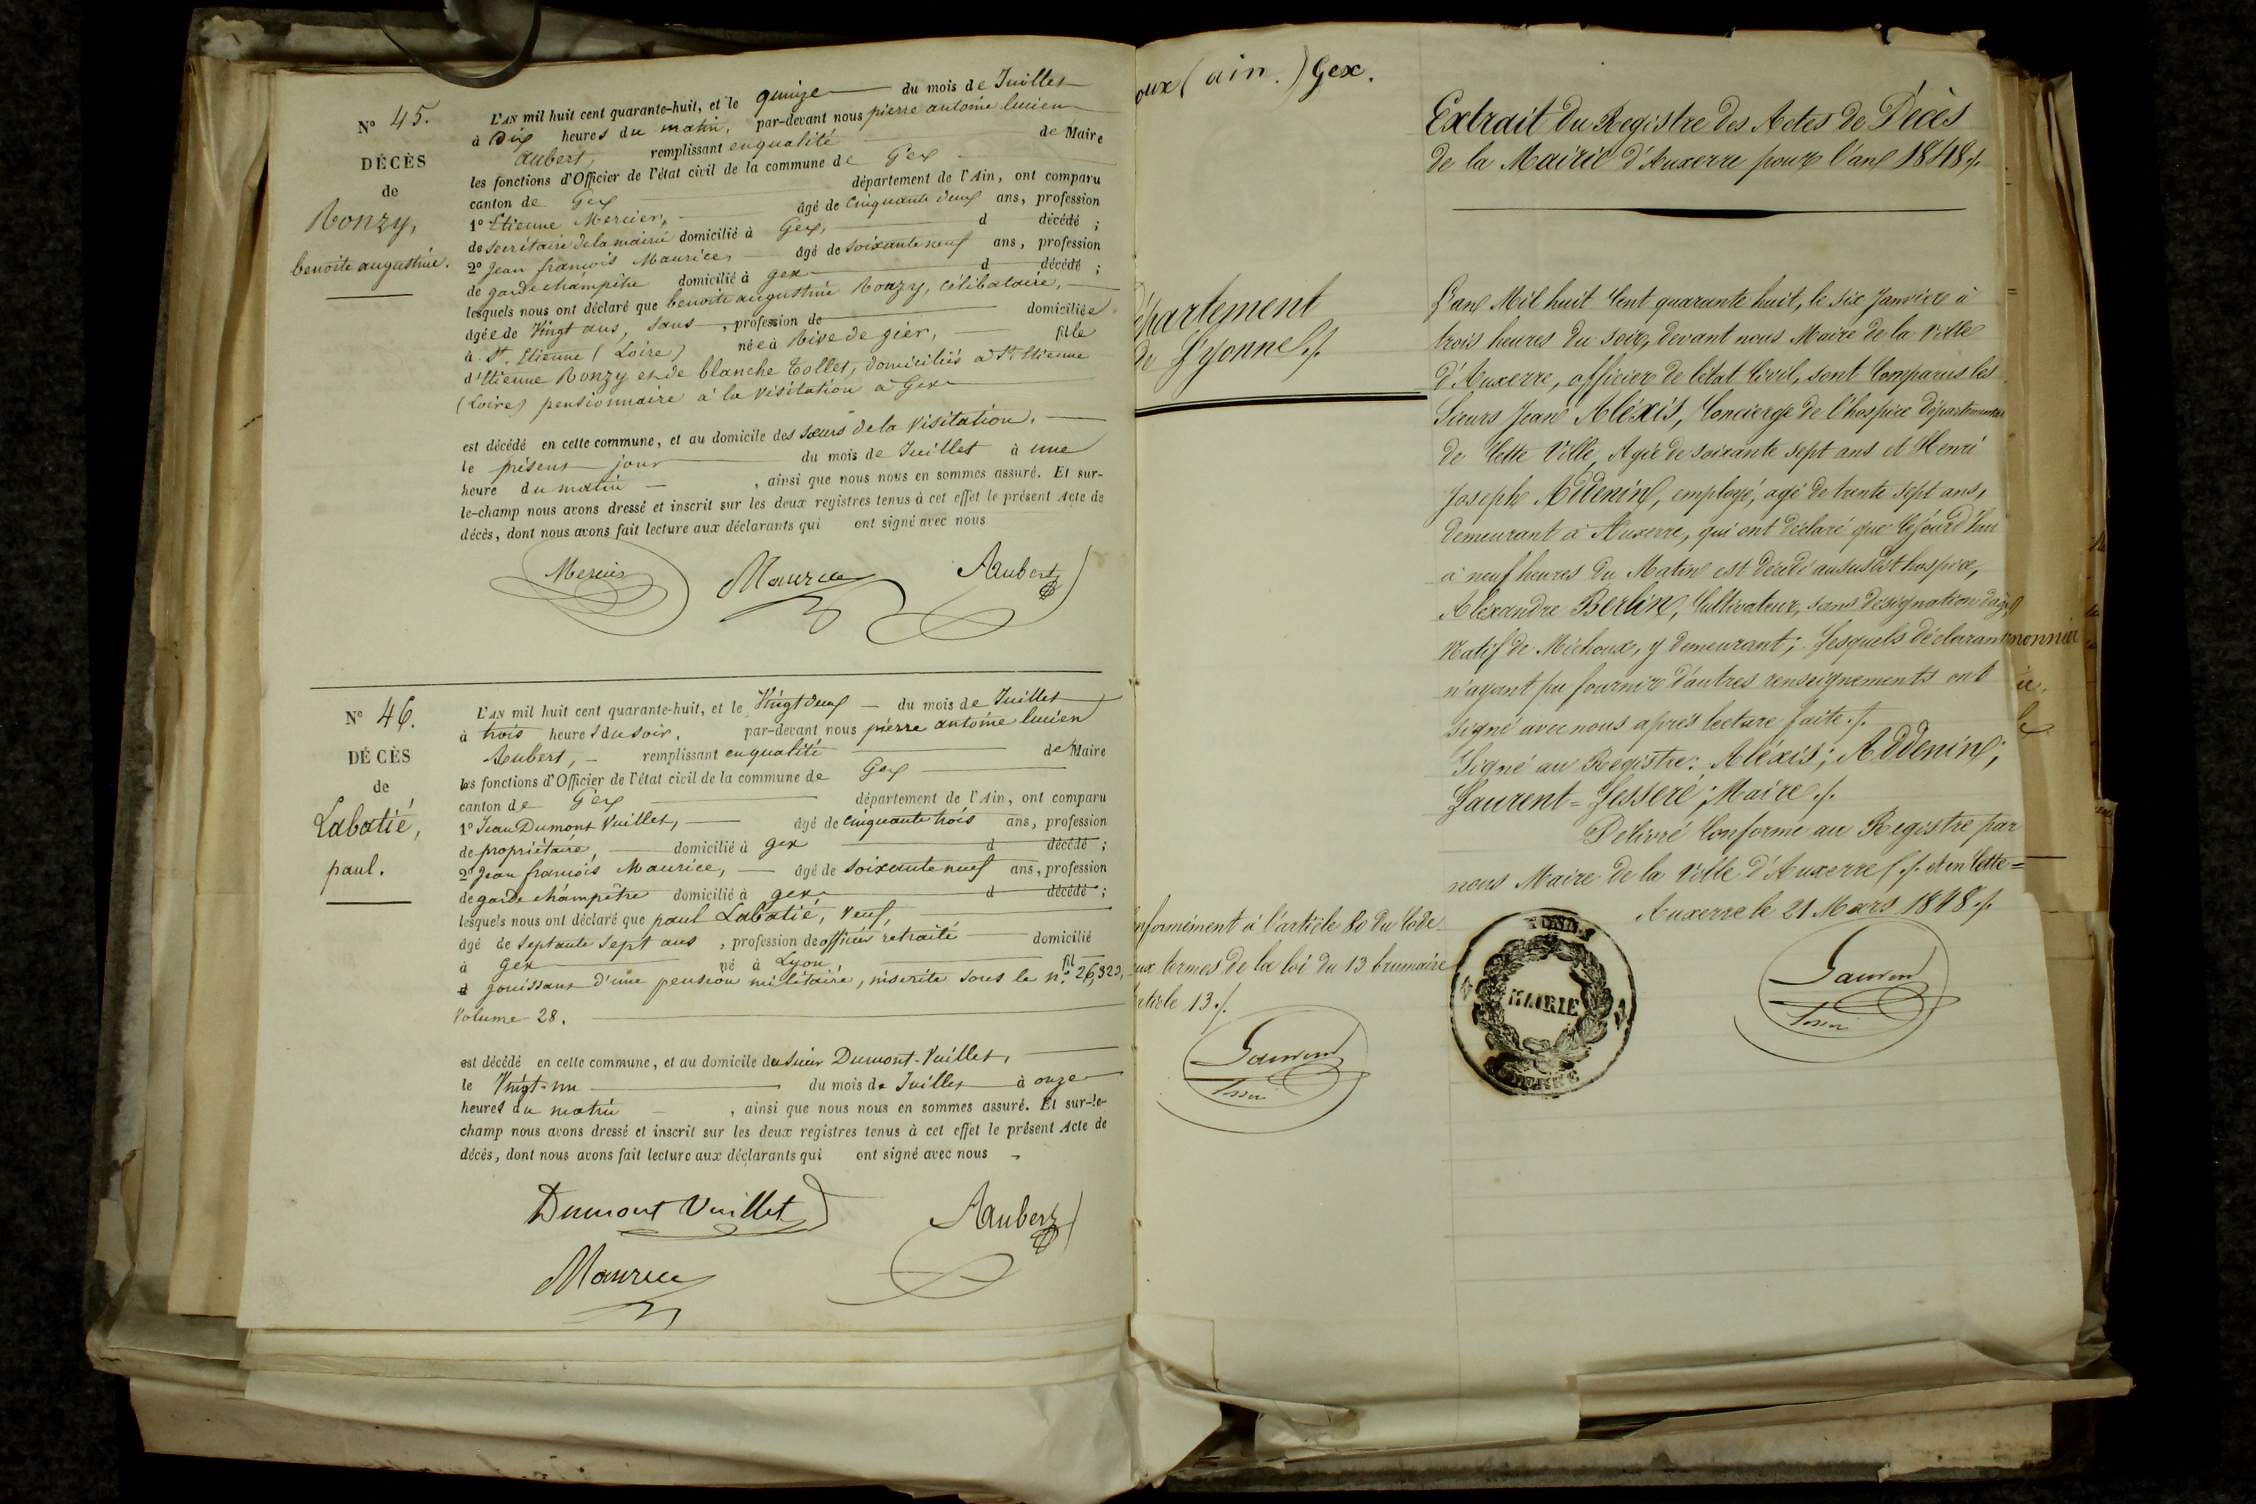 N° 45.
DÉCÈS
de
Ronzy,
benoite augustine.
L'AN mil huit cent quarante-huit, et le quinze du mois de Juillet
à Dix heures du matin, par-devant nous pierre antoine lucien
aubert, remplissant en qualité de Maire
les fonctions d'Officier de l'état civil de la commune de Gex
canton de Gex département de l'Ain, ont comparu
1° Etienne Mercier, âgé de Cinquante deux ans, profession
de secrétaire de la mairie domicilié à Gex, d décédé ;
2° Jean françois Maurice, âgé de soixante neuf ans, profession
de garde champêtre domicilié à gex d décédé ;
lesquels nous ont déclaré que benoite augustine Ronzy, célibataire,
âgée de Vingt ans, sans , profession de domiciliée
à St. Etienne (Loire) née à Rive de gier, fille
d'Etienne Ronzy et de blanche Collet, domiciliés à St Etienne
(Loire) pensionnaire à la Visitation à Gex
est décédé en cette commune, et au domicile des sœurs de la Visitation,
le présent jour du mois de Juillet à une
heure du matin , ainsi que nous nous en sommes assuré. Et sur-
le-champ nous avons dressé et inscrit sur les deux registres tenus à cet effet le présent Acte de
décès, dont nous avons fait lecture aux déclarants qui ont signé avec nous
Mercier Maurice Aubert
N° 46.
DÉCÈS
de
Labatié,
paul.
L'AN mil huit cent quarante-huit, et le Vingt deux du mois de Juillet
à trois heures du soir, par-devant nous pierre antoine lucien
Aubert, remplissant en qualité de Maire
les fonctions d'Officier de l'état civil de la commune de Gex
canton de Gex département de l'Ain, ont comparu
1° Jean Dumont Vuillet, âgé de Cinquante trois ans, profession
de propriétaire, domicilié à gex d décédé ;
2° Jean françois Maurice, âgé de soixante neuf ans, profession
de garde champêtre domicilié à gex d décédé ;
lesquels nous ont déclaré que paul Labatié, Veuf,
âgé de septante sept ans , profession de officier retraité domicilié
à gex né à Lyon fil
d jouissant d'une pension militaire, inscrite sous le n° 26,323,
Volume 28.
est décédé en cette commune, et au domicile du sieur Dumont-Vuillet,
le Vingt-un du mois de Juillet à onze
heures du matin , ainsi que nous nous en sommes assuré. Et sur-le-
champ nous avons dressé et inscrit sur les deux registres tenus à cet effet le présent Acte de
décès, dont nous avons fait lecture aux déclarants qui ont signé avec nous
Dumont Vuillet Aubert
Maurice
oux (ain.) Gex.
épartement
de Lyonne
nformément à l'article 80 du Code
ux termes de la loi du 13 brumaire
rticle 13
Laurent
Lesseré
Extrait du Registre des Actes de Décès
de la Mairie d'Auxerre pour l'an 1848
L'an Mil huit Cent quarante huit, le six Janvier à
trois heures du soir, devant nous Maire de la Ville
d'Auxerre, officier de l'état Civil, sont Comparus les
Sieurs Jean Aléxis, Concierge de l'hospice départemental
de Cette Ville, Agé de soixante sept ans et Henri
Joseph Addenin, employé, agé de trente sept ans,
demeurant à Auxerre, qui ont déclaré que Cejourd'hui
à neuf heures du Matin est décédé au susdit hospice,
Aléxandre Berlin, Cultivateur, sans désignation d'age
Natif de Michoux, y demeurant; Lesquels déclarants
n'ayant pu fournir d'autres renseignements ont
signé avec nous après lecture faite
Signé au Registre: Aléxis; Addenin;
Laurent=Lesseré; Maire
Délivré Conforme au Registre par
nous Maire de la Ville d'Auxerre
Auxerre le 21 Mars 1848
MAIRIE
Laurent
Lesseré